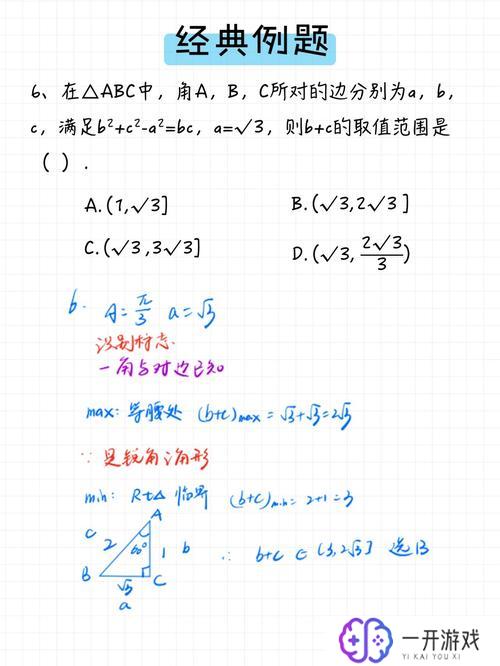 经典例题
6、在△ABC中，角A，B，C所对的边分别为a，b，
c，满足b²+c²-a²=bc，a=√3，则b+c的取值范围是
（ ）.
A.(1,√3]
B.(√3,2√3]
C.(√3,3√3]
D.(√3,2√3/3)
6. A=π/3 a=√3
识别标志.
一角与对边已知
max: 等腰处 (b+c)max=√3+√3=2√3
∵是锐角三角形
min: Rt△ 临界 (b+c)min=2+1=3
A
c 2 60° 1 b
B √3 C
a
∴ b+c ∈ (3,2√3] 选B
一开游戏
YI KAI YOU XI